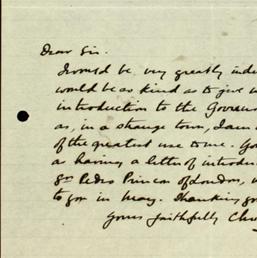 Dear Sir.
I would be very greatly inde
would be as kind as to give
introduction to the Govern
as, in a strange town, I am
of the greatest use to me. Yo
as having a letter of introdu
Pedro of London,
to you in May. Thanking yo
Yours faithfully